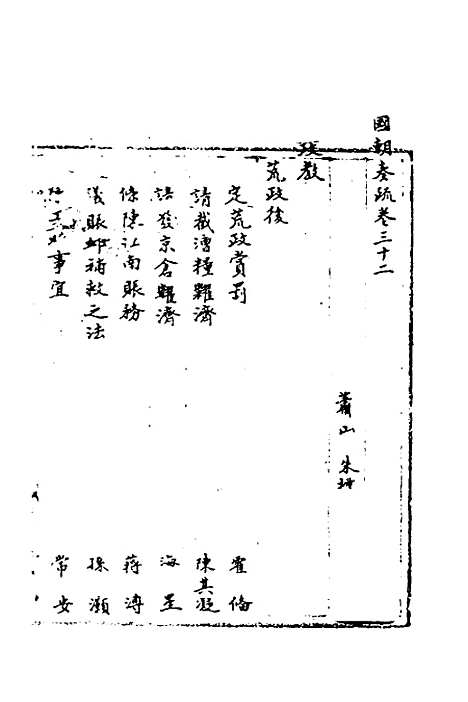 國朝奏疏卷三十二
蕭山 朱
政教
荒政後
定荒政賞罰 霍備
請截漕糧糶濟 陳其凝
請發京倉糶濟 海望
條陳江南賑務 蔣溥
議賑邺補救之法 孫灝
事宜 常安